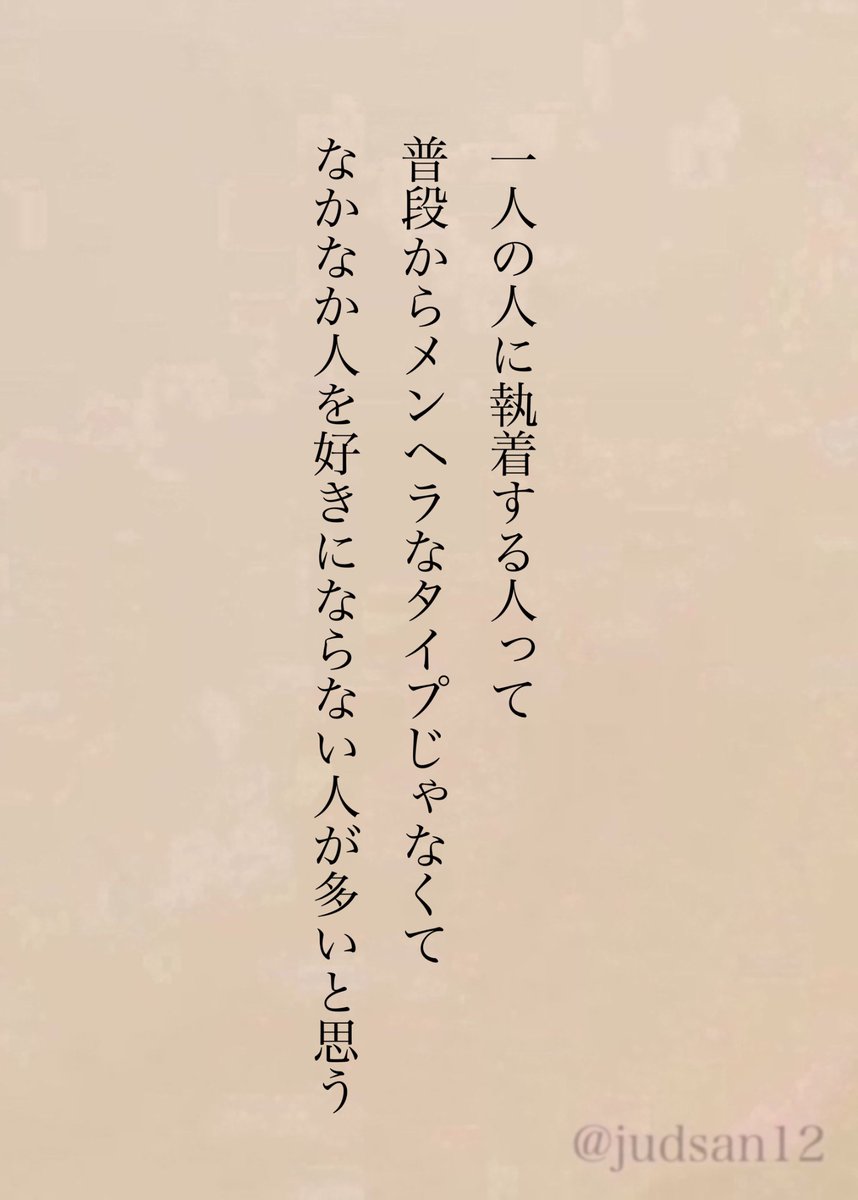 一人の人に執着する人って
普段からメンヘラなタイプじゃなくて
なかなか人を好きにならない人が多いと思う
@judsan12